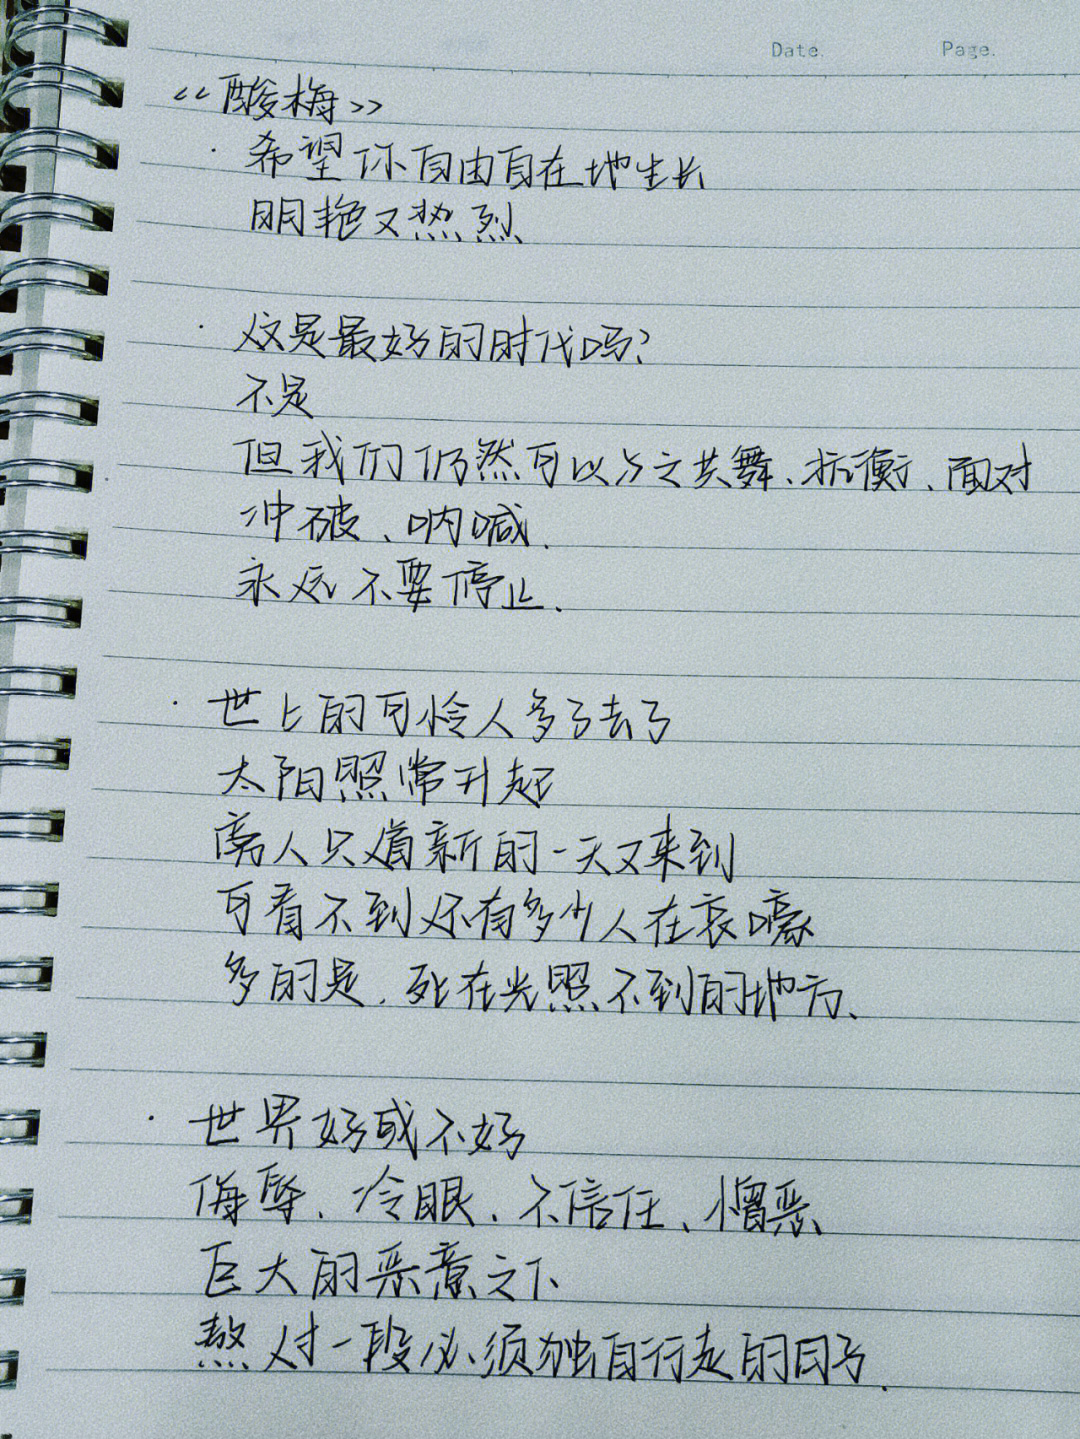 Date.
Page.
《酸梅》
· 希望你自由自在地生长
明艳又热烈
· 这是最好的时代吗?
不是
但我们仍然可以与之共舞、抗衡、面对
冲破、呐喊.
永远不要停止.
· 世上的可怜人多了去了
太阳照常升起
旁人只道新的一天又来到
可看不到还有多少人在哀嚎
多的是.死在光照不到的地方、
· 世界好或不好
侮辱、冷眼、不信任、憎恶、
巨大的恶意之下
熬过一段必须独自行走的日子.